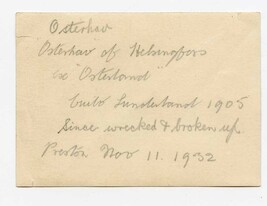 Osterhav
Osterhav of Helsingfors
ex "Osterland"
built Sunderland 1905
Since wrecked & broken up.
Preston Nov 11. 1932